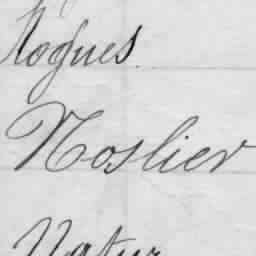 Nogues.
Noslier
Natur